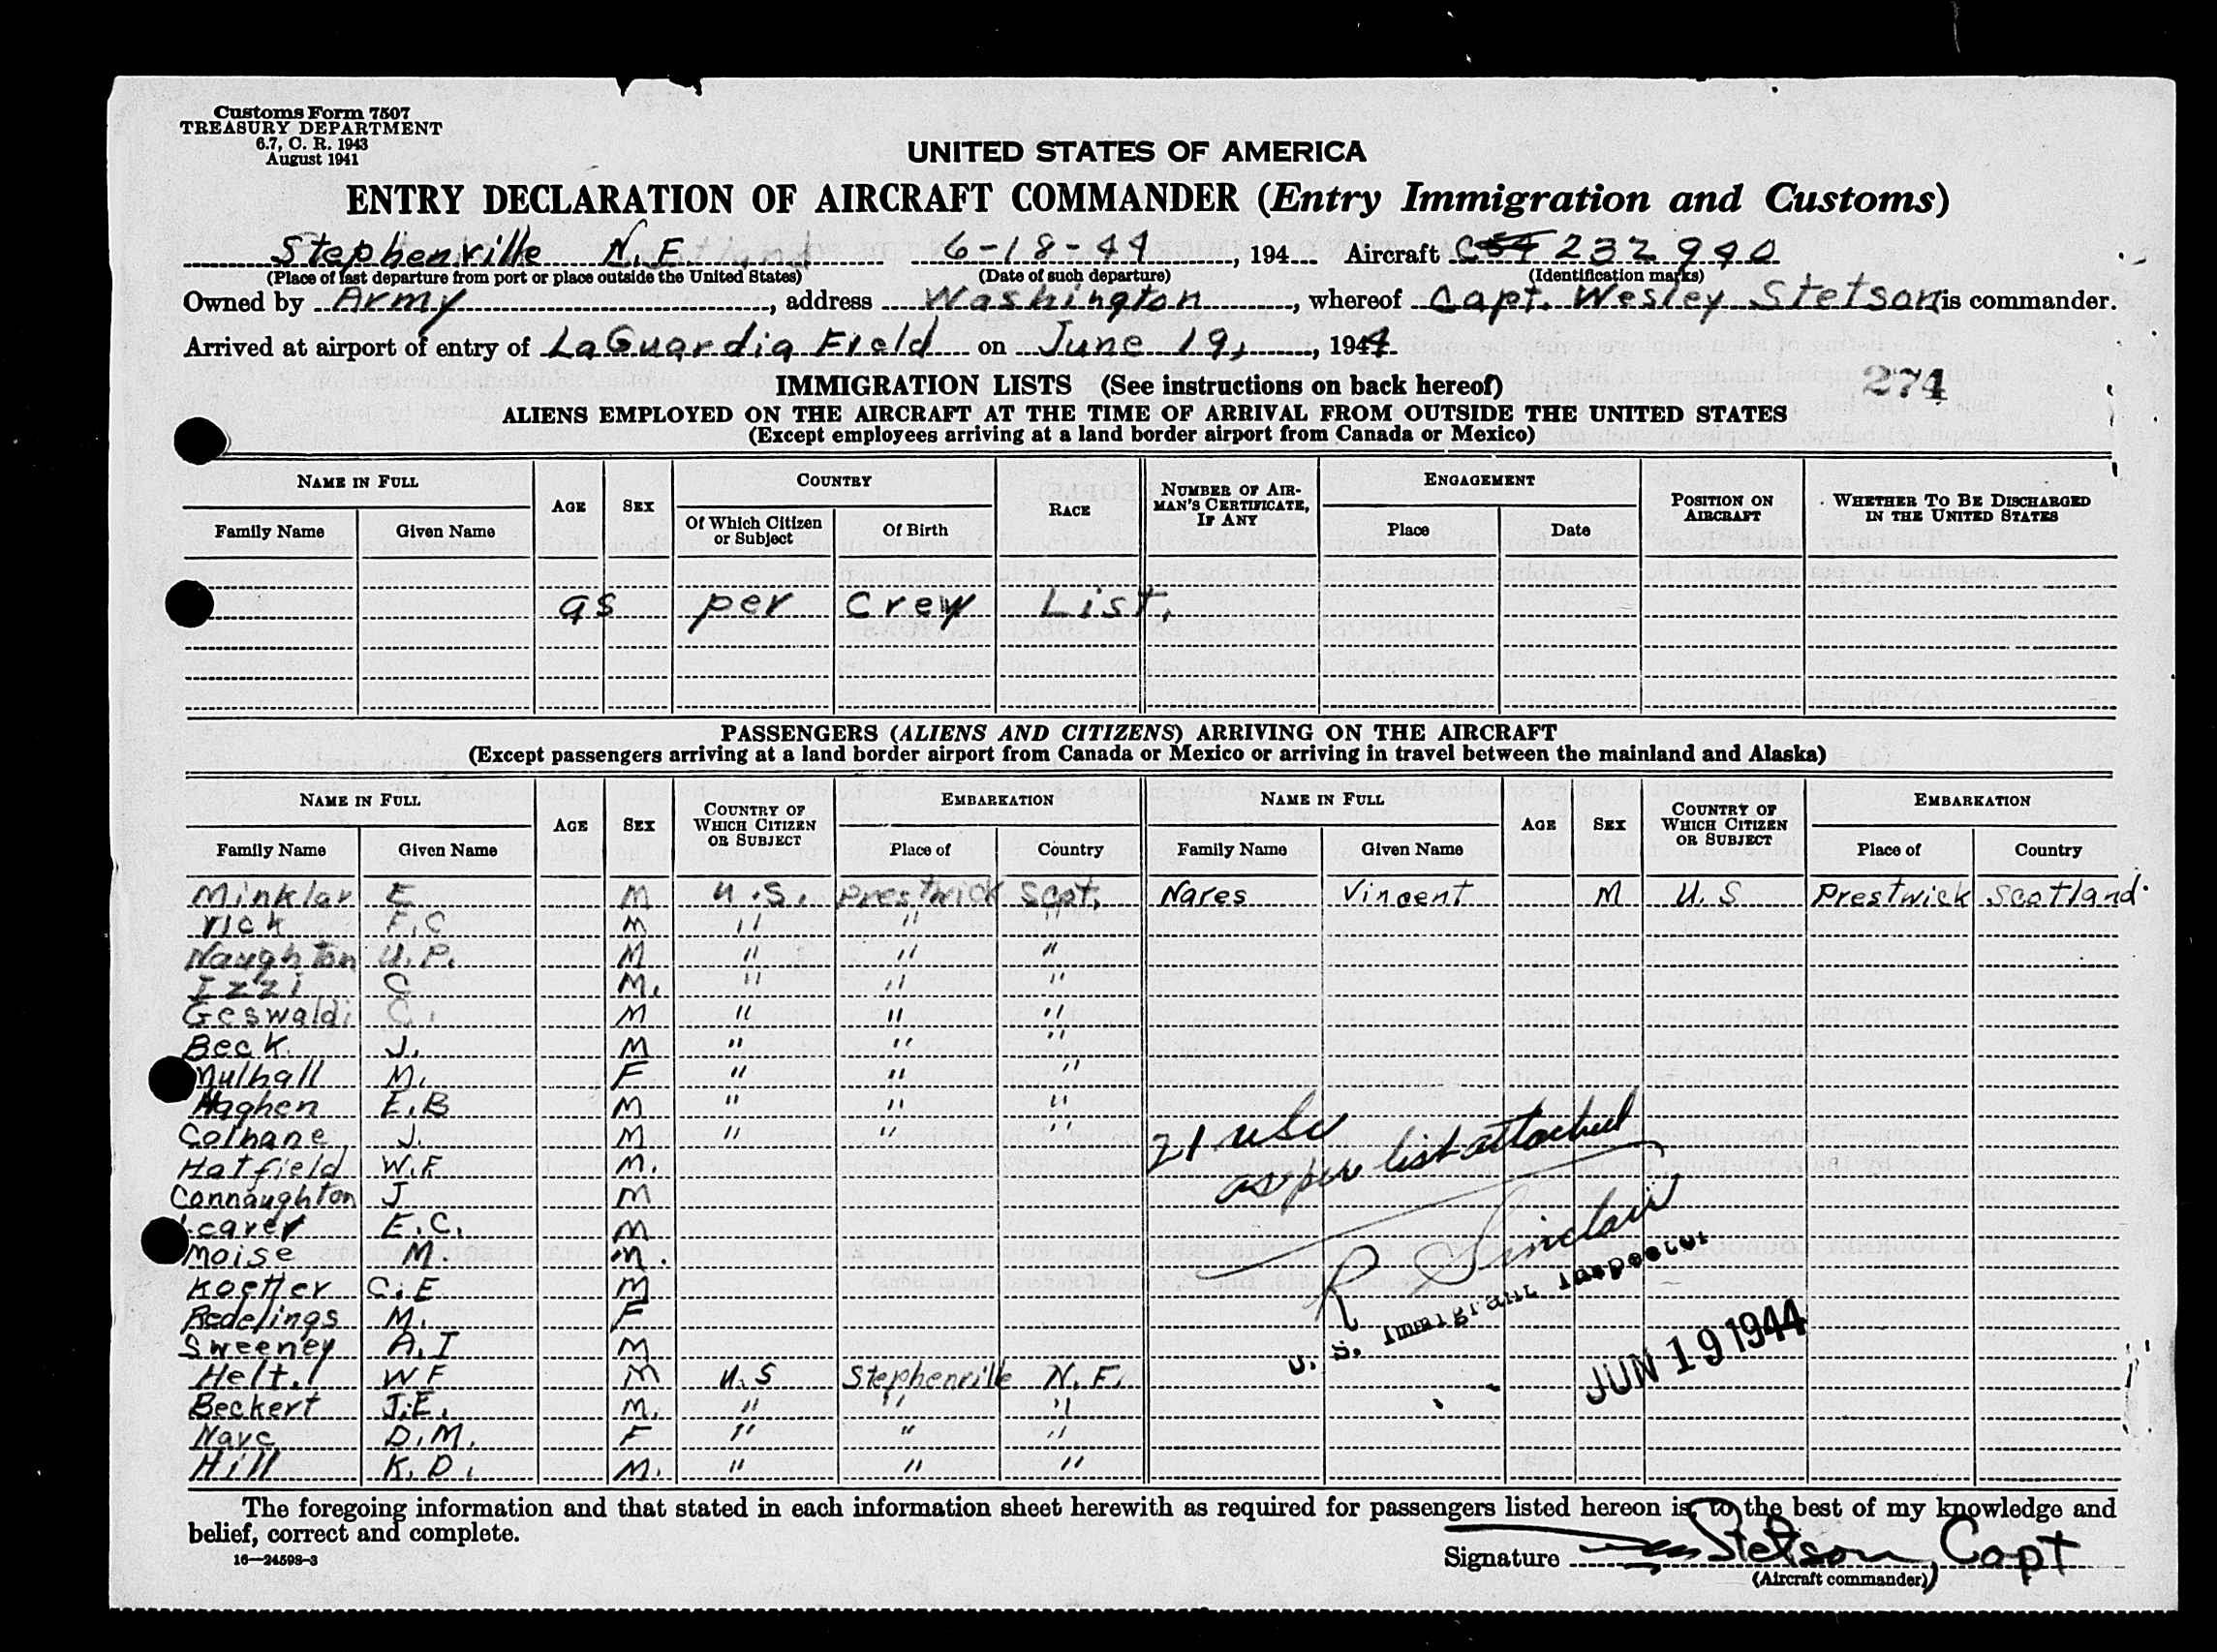 Customs Form 7507
TREASURY DEPARTMENT
6.7, C. R. 1943
August 1941
UNITED STATES OF AMERICA
ENTRY DECLARATION OF AIRCRAFT COMMANDER (Entry Immigration and Customs)
Stephenville N.F. 6-18-44, 194 Aircraft C54 232940
(Place of last departure from port or place outside the United States) (Date of such departure) (Identification marks)
Owned by Army, address Washington, whereof Capt. Wesley Stetson is commander.
Arrived at airport of entry of LaGuardia Field on June 19, 1944
IMMIGRATION LISTS (See instructions on back hereof) 274
ALIENS EMPLOYED ON THE AIRCRAFT AT THE TIME OF ARRIVAL FROM OUTSIDE THE UNITED STATES
(Except employees arriving at a land border airport from Canada or Mexico)
NAME IN FULL AGE SEX COUNTRY RACE NUMBER OF AIRMAN'S CERTIFICATE, IF ANY ENGAGEMENT POSITION ON AIRCRAFT WHETHER TO BE DISCHARGED IN THE UNITED STATES
Family Name Given Name Of Which Citizen or Subject Of Birth Place Date
as per Crew List.
PASSENGERS (ALIENS AND CITIZENS) ARRIVING ON THE AIRCRAFT
(Except passengers arriving at a land border airport from Canada or Mexico or arriving in travel between the mainland and Alaska)
NAME IN FULL AGE SEX COUNTRY OF WHICH CITIZEN OR SUBJECT EMBARKATION NAME IN FULL AGE SEX COUNTRY OF WHICH CITIZEN OR SUBJECT EMBARKATION
Family Name Given Name Place of Country Family Name Given Name Place of Country
Minklar E M U.S. Prestwick Scot. Nares Vincent M U.S Prestwick Scotland
rick F.C M " " "
Naughton U.P. M " " "
Izzi C M. " " "
Geswaldi C. M " " "
Beck. J. M " " "
Mulhall M. F " " "
Haghen E.B M " " "
Colhane J. M " " "
Hatfield W.F M.
Connaughton J M
E.C. M
Moise M. M.
Koetter C.E M
Redelings M. F
Sweeney A.I M
Helt. W F M U.S Stephenville N.F.
Beckert J.E. M. " " "
Nave D.M. F " " "
Hill K.D. M. " " "
21 USC
as per list attached
R Sinclair
U. S. Immigrant Inspector
JUN 19 1944
The foregoing information and that stated in each information sheet herewith as required for passengers listed hereon is, to the best of my knowledge and
belief, correct and complete.
16—24598-3
Signature Stetson, Capt
(Aircraft commander)